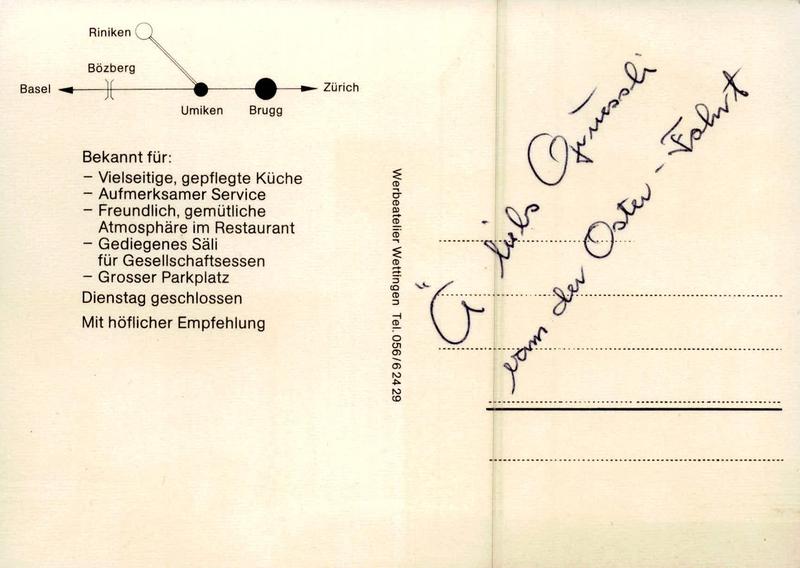 Riniken
Bözberg
Basel
Zürich
Umiken
Brugg
Bekannt für:
– Vielseitige, gepflegte Küche
– Aufmerksamer Service
– Freundlich, gemütliche
Atmosphäre im Restaurant
– Gediegenes Säli
für Gesellschaftsessen
– Grosser Parkplatz
Dienstag geschlossen
Mit höflicher Empfehlung
Werbeatelier Wettingen Tel. 056/6 24 29
Ä liebs Grüessli
vom der Oster-Fahrt